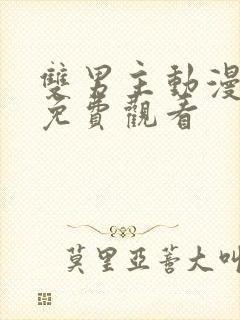 雙男主動漫
免費觀看
莫里亞蒈大叫